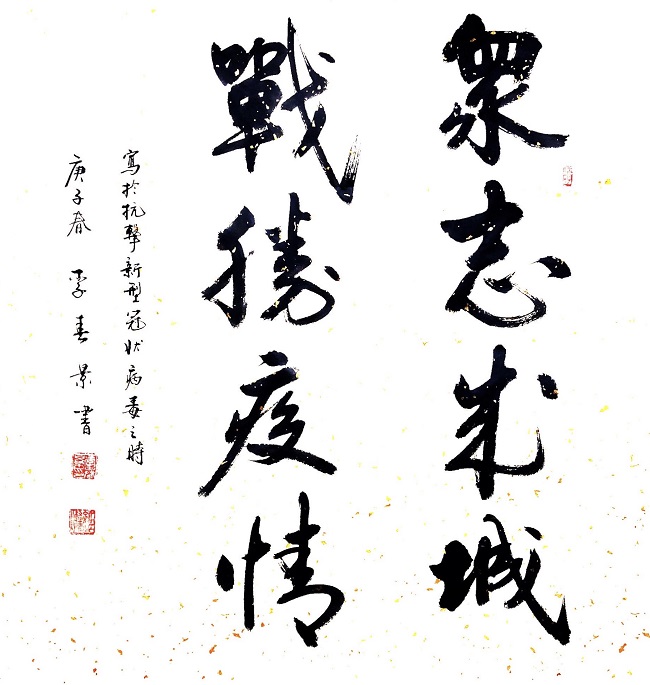 眾志成城
戰勝疫情
寫於抗擊新型冠狀病毒之時
庚子春 李春景書